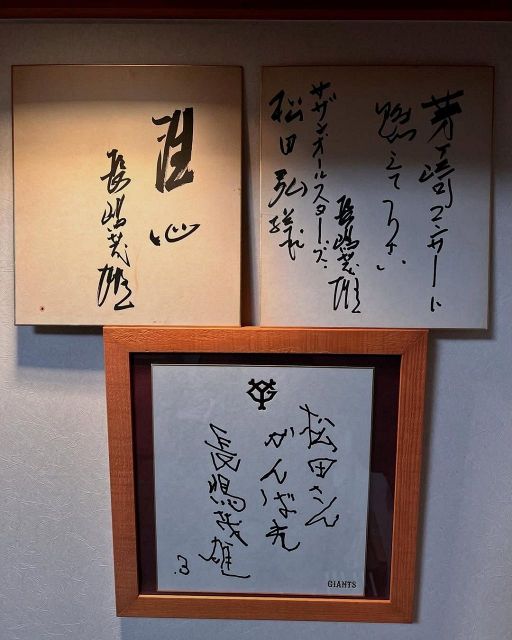 心
長嶋茂雄
茅ヶ崎コンサートに
燃えて下さい
長嶋茂雄
サザンオールスターズ
松田弘様
松田さん
がんばれ
長嶋茂雄
3
GIANTS